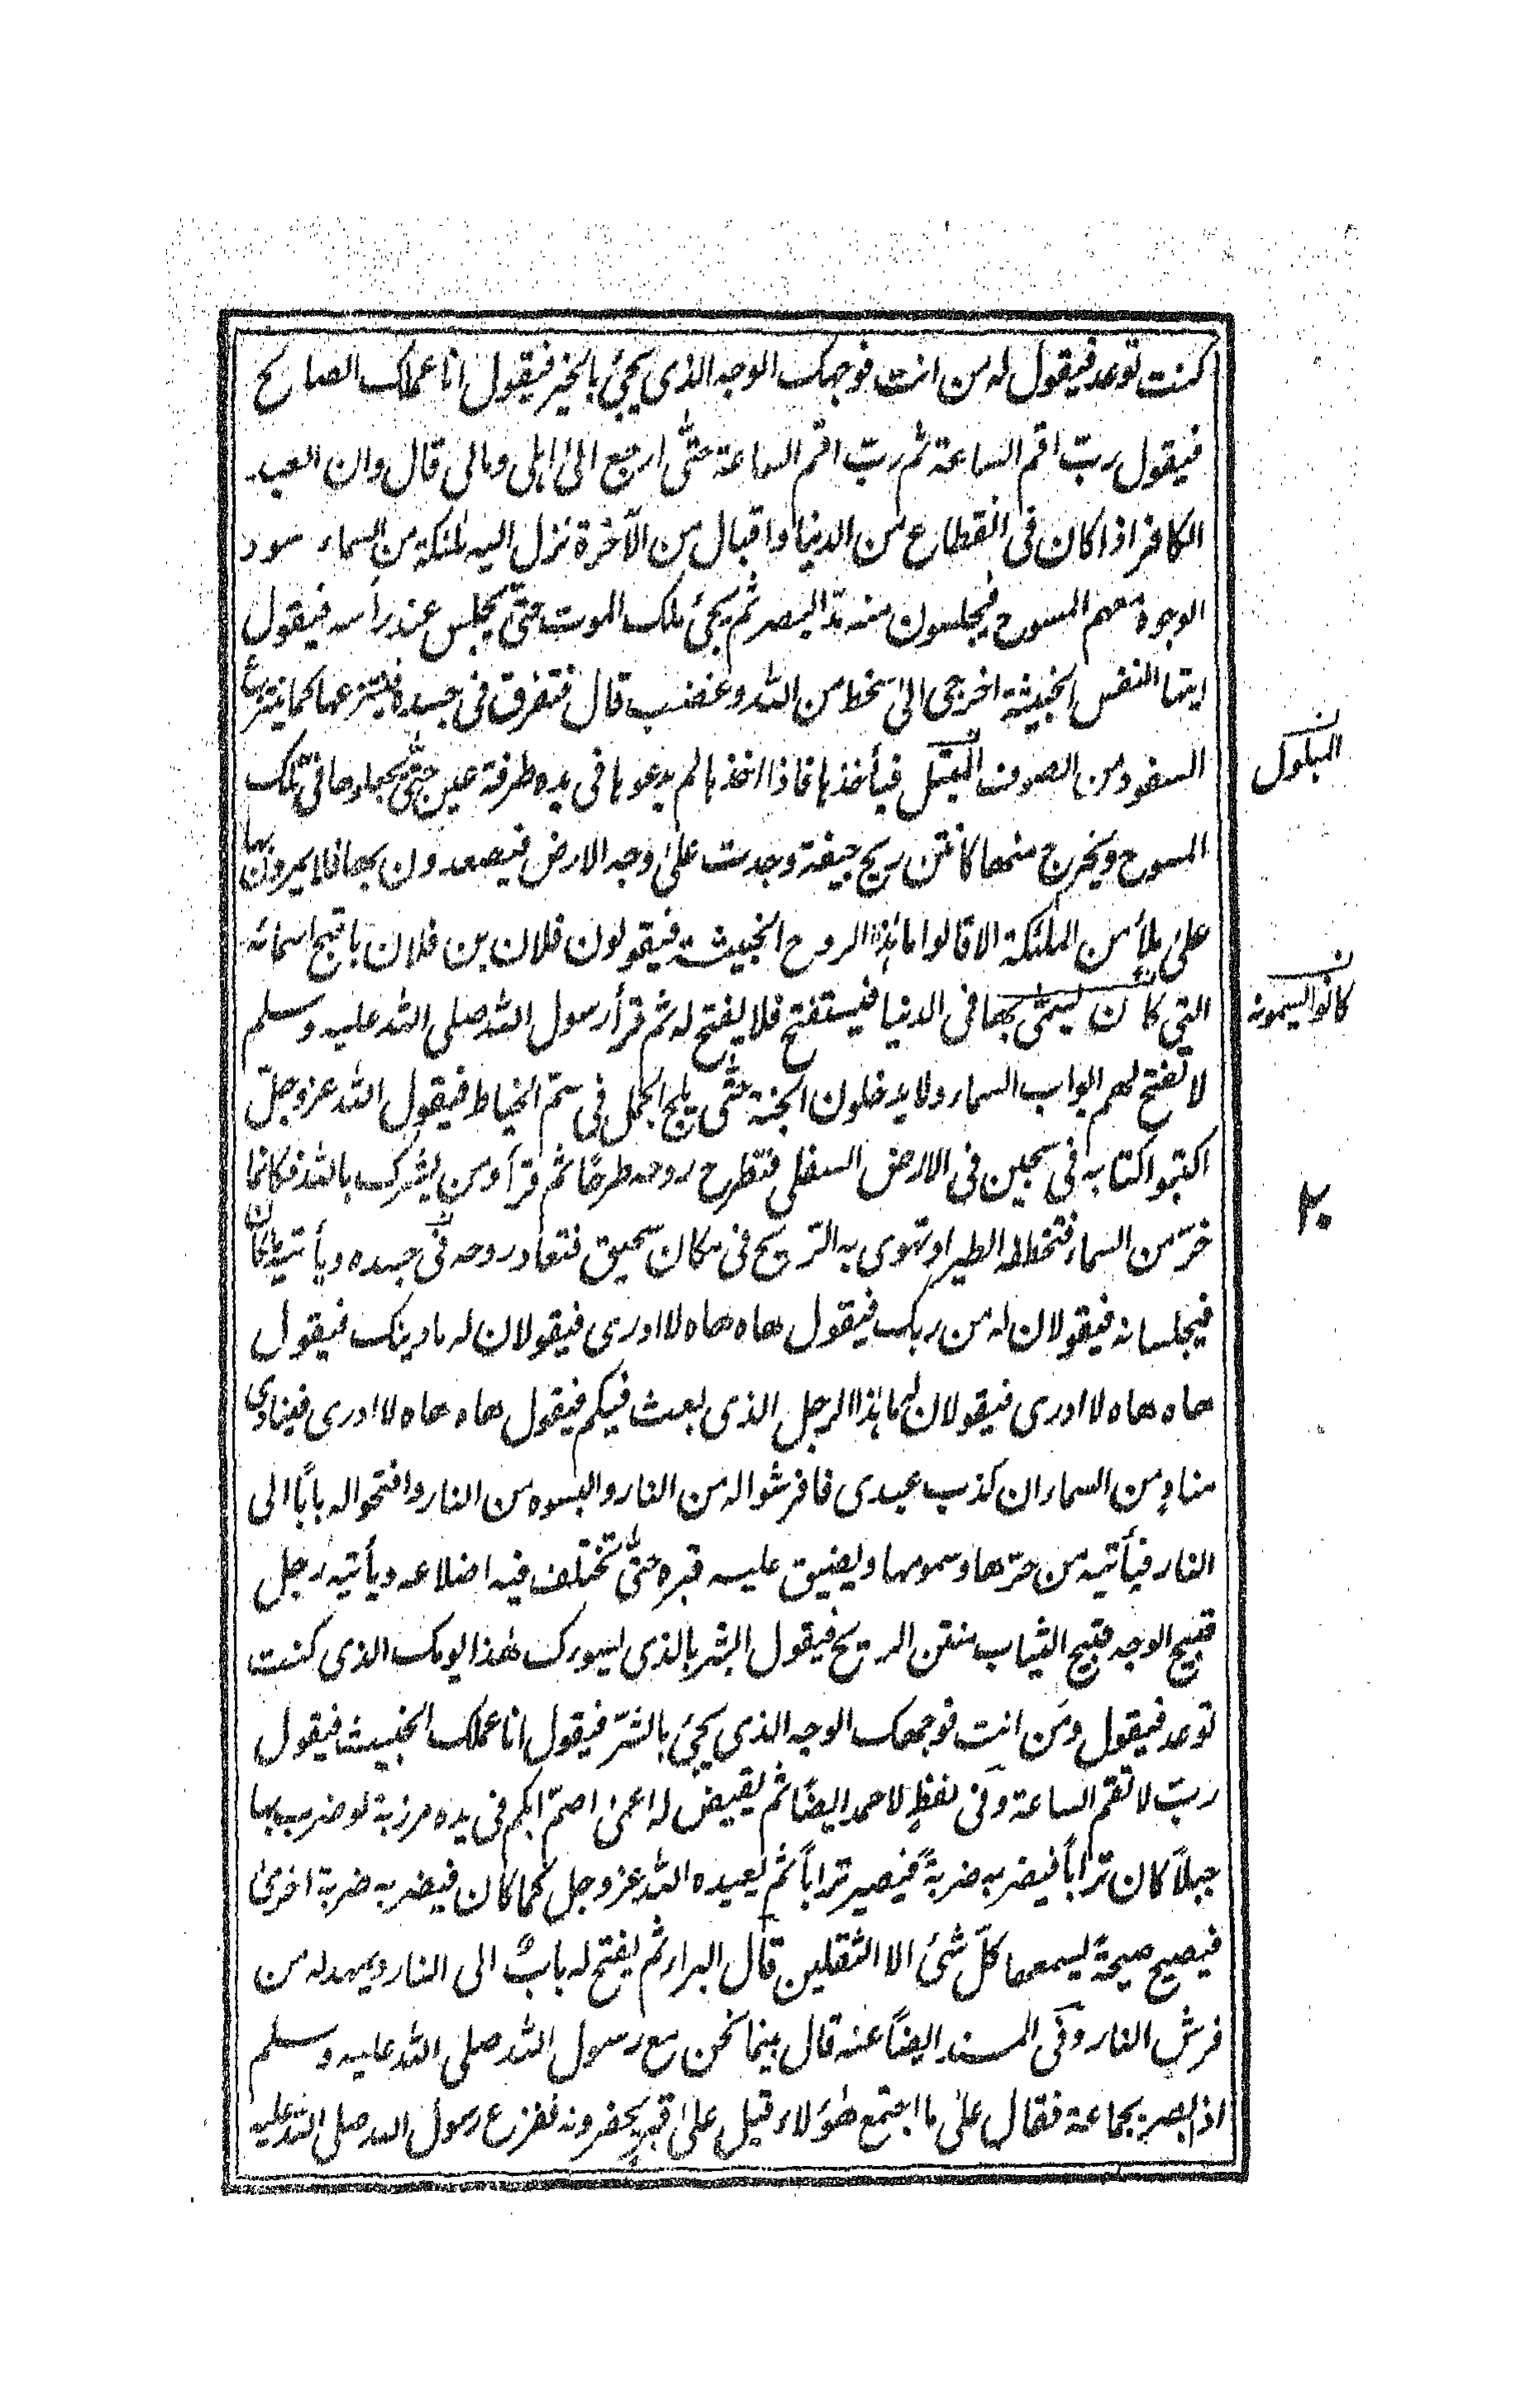 كنت توعد فيقول له من انت فوجهك الوجه الذى يجئ بالخير فيقول انا عملك الصالح
فيقول ربّ اقم الساعة ثم ربّ اقم الساعة حتّى ارجع الى اهلى ومالى قال وان العبد
الكافر اذا كان فى انقطاع من الدنيا واقبال من الآخرة نزل اليه ملئكة من السماء سود
الوجوه معهم المسوح فيجلسون منه مدّ البصر ثم يجئ ملك الموت حتى يجلس عند رأسه فيقول
ايتها النفس الخبيثة اخرجى الى سخط من الله وغضب قال فتفرق فى جسده فينتزعها كما ينتزع
السفود من الصوف المبتل فيأخذها فاذا اخذها لم يدعوها فى يده طرفة عين حتّى يجعلوها فى تلك
المبلول
المسوح ويخرج منها كانتن ريح جيفة وجدت على وجه الارض فيصعدون بها فلا يمرون بها
على ملأ من الملئكة الا قالوا ما هذا الروح الخبيث فيقولون فلان بن فلان باقبح اسمائه
التي كان يسمّى بها فى الدنيا فيستفتح فلا يفتح له ثم قرأ رسول الله صلى الله عليه وسلم
كانوا يسمونه
لا تفتح لهم ابواب السماء ولا يدخلون الجنة حتّى يلج الجمل فى سمّ الخياط فيقول الله عزوجلّ
اكتبوا كتابه فى سجين فى الارض السفلى فتطرح روحه طرحًا ثم قرأ ومن يشرك بالله فكانما
خرّ من السماء فتخطفه الطير او تهوى به الرّيح فى مكان سحيق فتعاد روحه فى جسده ويأتيه ملكان
٢٠
فيجلسانه فيقولان له من ربك فيقول هاه هاه لا ادرى فيقولان له ما دينك فيقول
هاه هاه لا ادرى فيقولان له ما هذا الرجل الذى بعث فيكم فيقول هاه هاه لا ادرى فينادى
منادٍ من السماء ان كذب عبدى فافرشوا له من النار والبسوه من النار وافتحوا له بابًا الى
النار فيأتيه من حرّها وسمومها ويضيق عليه قبره حتّى تختلف فيه اضلاعه ويأتيه رجل
قبيح الوجه قبيح الثياب منتن الريح فيقول ابشر بالذى يسوءك هذا يومك الذى كنت
توعد فيقول ومن انت فوجهك الوجه الذى يجئ بالشرّ فيقول انا عملك الخبيث فيقول
ربّ لا تقم الساعة وفى لفظٍ لاحمد ايضًا ثم يقيض له اعمى اصمّ ابكم فى يده مرزبة لو ضرب بها
جبلاً كان تراباً فيضربه ضربةً فيصير تراباً ثم يعيده الله عزوجل كما كان فيضربه ضربة اخرى
فيصيح صيحةً يسمعها كلّ شئ الا الثقلين قال البراء ثم يفتح له بابٌ الى النار ويمهد له من
فرش النار وفى المسند ايضًا عنه قال بينما نحن مع رسول الله صلى الله عليه وسلم
اذ بصر بجماعة فقال على ما اجتمع هؤلاء قيل على قبرٍ يحفرونه ففزع رسول الله صلى الله عليه